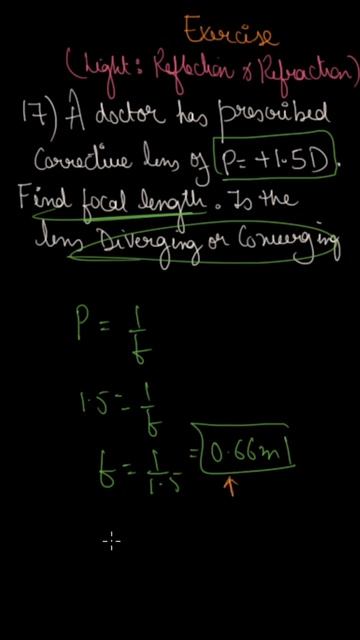 Exercise
(Light: Reflection & Refraction)
17) A doctor has prescribed
corrective lens of P= +1.5D.
Find focal length. Is the
lens Diverging or Converging
P = 1/f
1.5 = 1/f
f = 1/1.5 = 0.66m